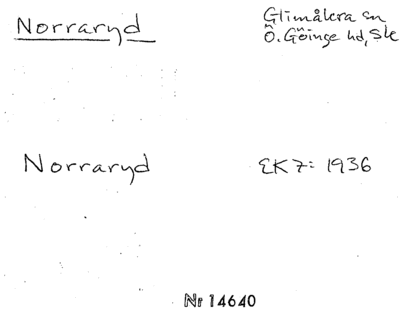 Norraryd
Glimåkra sn
Ö. Göinge hd, Sk
Norraryd
EK 7: 1936
Nr 14640